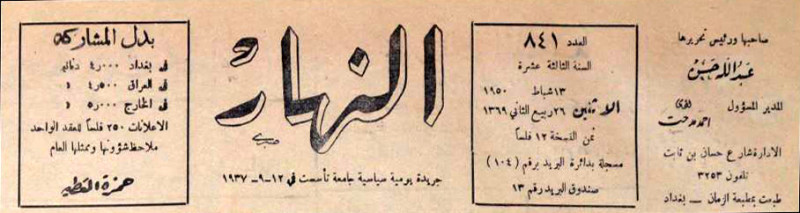 صاحبها ورئيس تحريرها
عبدالله حسن
المدير المسؤول
احمد مدحت
الادارة شارع حسان بن ثابت
تلفون ٣٢٥٣
طبعت بمطبعة الزمان — بغداد
العدد ٨٤١
السنة الثالثة عشرة
١٣ شباط ١٩٥٠
الاثنين ٢٦ ربيع الثاني ١٣٦٩
ثمن النسخة ١٢ فلساً
مسجلة بدائرة البريد برقم (١٠٤)
صندوق البريد رقم ١٣
النهار
جريدة يومية سياسية جامعة تأسست في ١٢-٩-١٩٣٧
بدل المشاركة
في بغداد ٤,٠٠٠
في العراق ٤,٥٠٠
في الخارج ٥,٠٠٠
الاعلانات ٢٥٠ فلساً للعقد الواحد
ملاحظ شؤونها وممثلها العام
حمزة